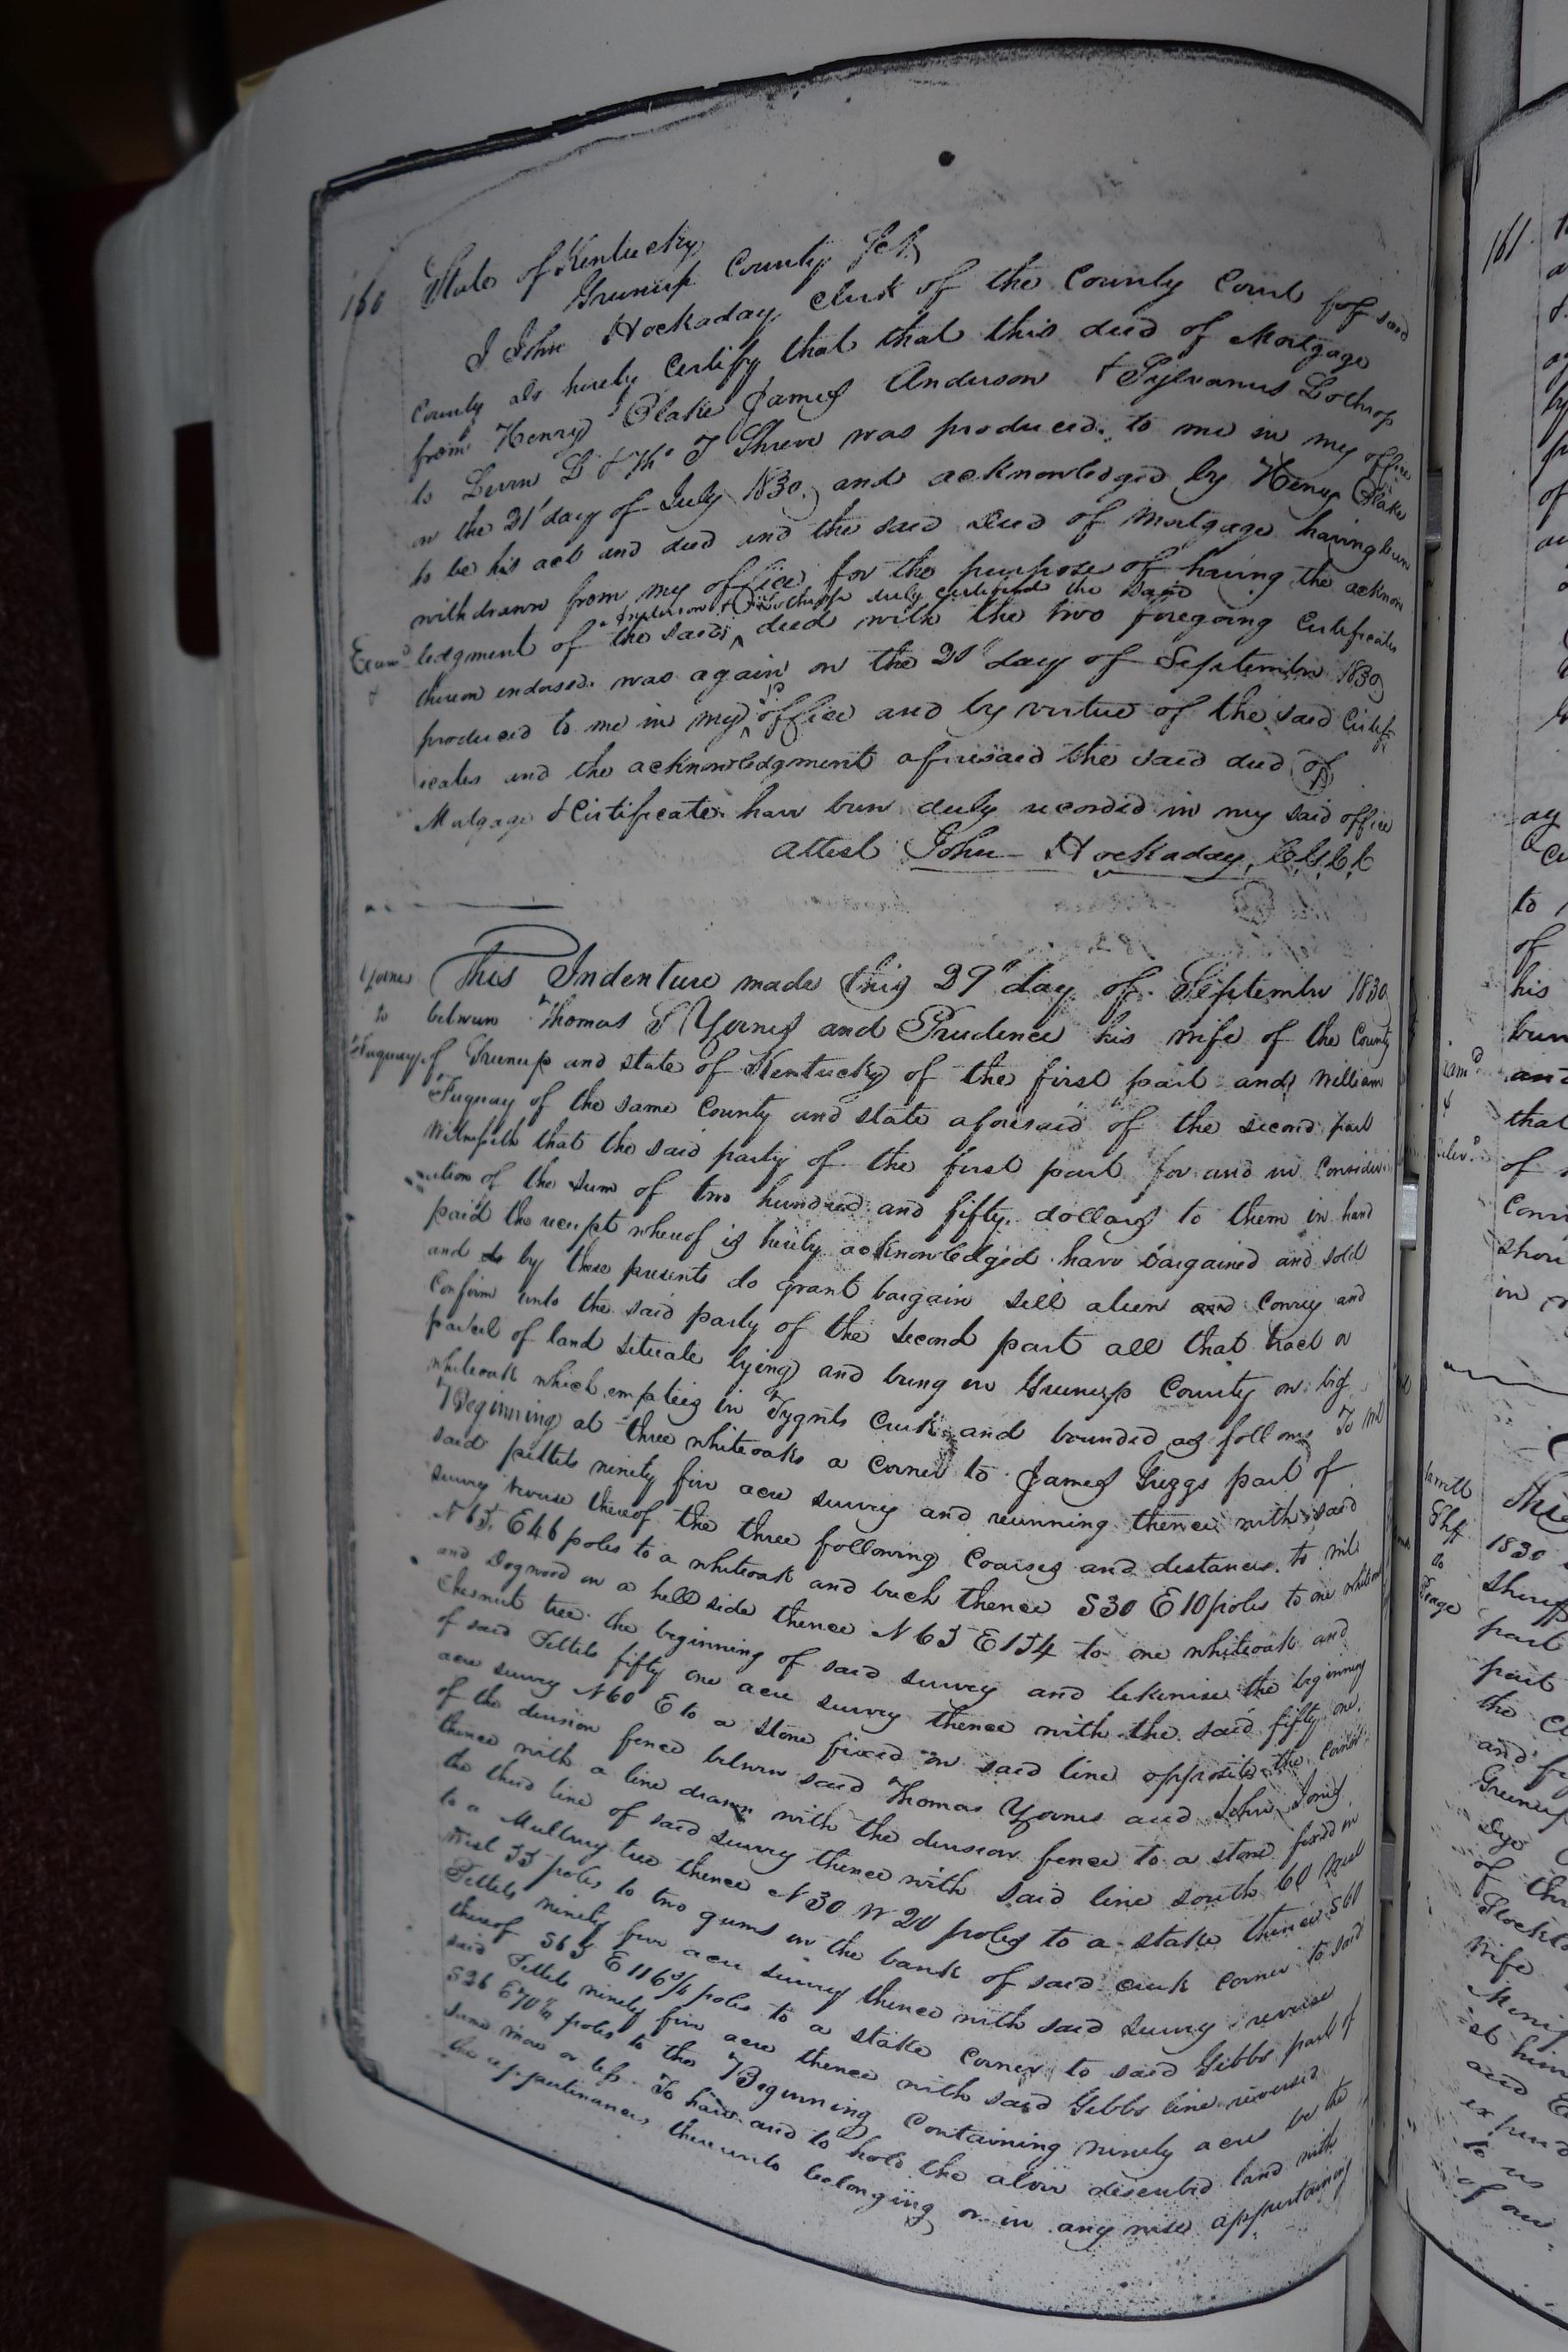 160
State of Kentucky
Greenup County Sct
I John Hockaday Clerk of the County Court for said
County do hereby Certify that that this deed of Mortgage
from Henry Blake James Anderson & Sylvanus Lothrop
to Levin L & Tho T Shreve was produced to me in my office
on the 21st day of July 1830 and acknowledged by Henry Blake
to be his act and deed and the said Deed of Mortgage having been
withdrawn from my office for the purpose of having the acknow
ledgment of the said Anderson & Lothrop duly certified the said deed with the two foregoing Certificates
Exam.d
&
thereon endorsed was again on the 20th day of September 1830
produced to me in my sd office and by virtue of the said Certif
icates and the acknowledgment aforesaid the said deed of
Mortgage & Certificates have been duly recorded in my said office
attest John Hockaday, C.G.C.C.
Yornes
to
Fuquay
This Indenture made this 29th day of September 1830
between Thomas Yornes and Prudence his wife of the County
of Greenup and state of Kentucky of the first part and William
Fuquay of the same County and state aforesaid of the second part
Witnesseth that the said party of the first part for and in Consider
ation of the sum of two hundred and fifty dollars to them in hand
paid the receipt whereof is hereby acknowledged have bargained and sold
and do by these presents do grant bargain sell alien and Convey and
Confirm unto the said party of the second part all that tract or
parcel of land situate lying and being in Greenup County on big
whiteoak which empties in Tygrts Creek and bounded as follows To wit
Beginning at three whiteoaks a corner to James Griggs part of
said pettets ninety five acre survey and reunning thence with said
survey reverse thereof the three following Coarses and distances to wit
N 65 E 46 poles to a whiteoak and beech thence S 30 E 10 poles to one whiteoak
and Dogwood on a hell side thence N 65 E 154 to one whiteoak and
Chesnut tree the beginning of said survey and likewise the beginning
of said Pettets fifty one acre survey thence with the said fifty one
acre survey N 60 E to a stone fixed in said line opposite the corner
of the devision fence between said Thomas Yornes and John Jones
thence with a line drawn with the devision fence to a stone fixed in
the third line of said survey thence with said line south 60 West
to a Mulbury tree thence N 30 W 20 poles to a stake thence S 60
West 55 poles to two gums on the bank of said creek corner to said
Pettets ninety five acre survey thence with said survey reverse
thereof S 65 E 116 3/4 poles to a stake corner to said Gibbs part of
said Pettets ninety five acre thence with said Gibbs line reversed
S 26 E poles to the Beginning Containing ninety acres be the
same more or less. To have and to hold the above described land with
the appertinances thereunto belonging or in any wise appertaining
161